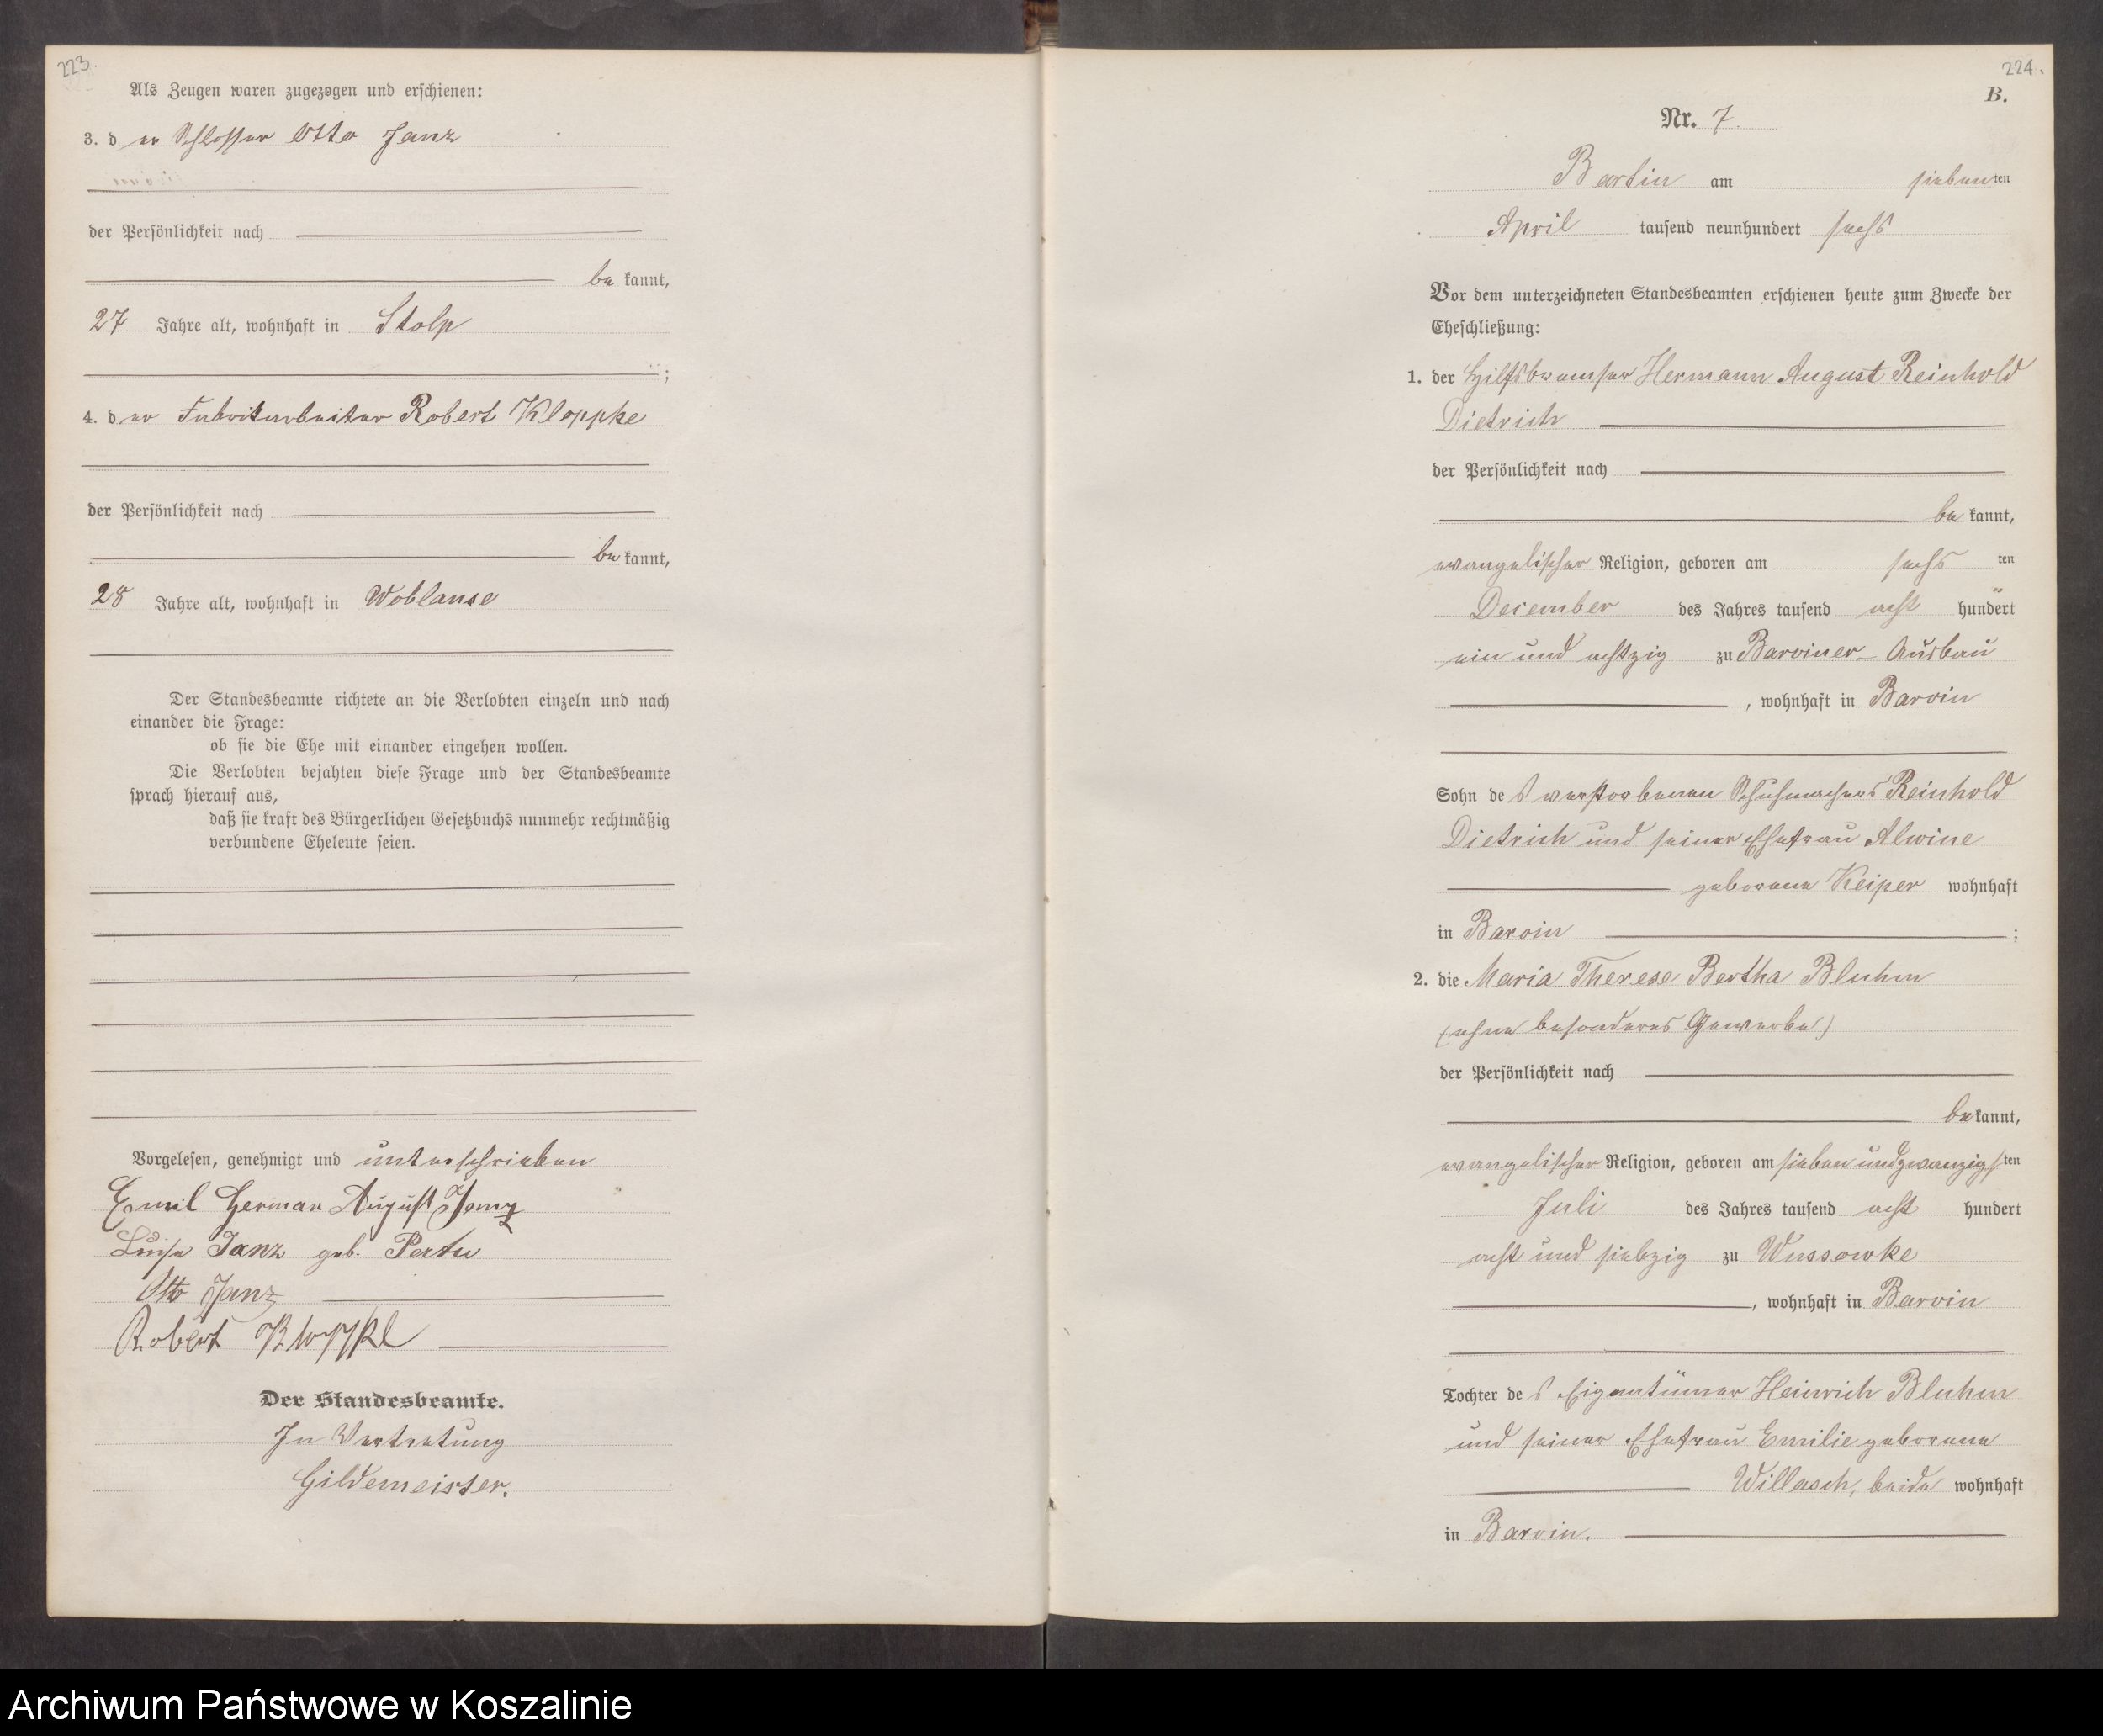 223.
Als Zeugen waren zugezogen und erschienen:
3. der Schlosser Otto Janz
der Persönlichkeit nach
bekannt,
27 Jahre alt, wohnhaft in Stolp
;
4. der Fabrikarbeiter Robert Kloppke
der Persönlichkeit nach
bekannt,
28 Jahre alt, wohnhaft in Woblanse
Der Standesbeamte richtete an die Verlobten einzeln und nach
einander die Frage:
ob sie die Ehe mit einander eingehen wollen.
Die Verlobten bejahten diese Frage und der Standesbeamte
sprach hierauf aus,
daß sie kraft des Bürgerlichen Gesetzbuchs nunmehr rechtmäßig
verbundene Eheleute seien.
Vorgelesen, genehmigt und unterschrieben
Emil Herman August Janz
Luise Janz geb.
Otto Janz
Robert Kloppke
Der Standesbeamte.
In Vertretung
Gildemeister.
224.
B.
Nr. 7.
Bartin am siebenten
April tausend neunhundert sechs
Vor dem unterzeichneten Standesbeamten erschienen heute zum Zwecke der
Eheschließung:
1. der Hilfsbremser Hermann August Reinhold
Dietrich
der Persönlichkeit nach
bekannt,
evangelischer Religion, geboren am sechsten
Dezember des Jahres tausend acht hundert
ein und achtzig zu Barviner-Ausbau
, wohnhaft in Barvin
Sohn des verstorbenen Schuhmachers Reinhold
Dietrich und seiner Ehefrau Alwine
geborene Keiper wohnhaft
in Barvin ;
2. die Maria Therese Bertha Bluhm
(ohne besonderes Gewerbe)
der Persönlichkeit nach
bekannt,
evangelischer Religion, geboren am siebenundzwanzigsten
Juli des Jahres tausend acht hundert
acht und siebzig zu Wussowke
, wohnhaft in Barvin
Tochter des Eigentümer Heinrich Bluhm
und seiner Ehefrau Emilie geborene
Willasch, beide wohnhaft
in Barvin.
Archiwum Państwowe w Koszalinie